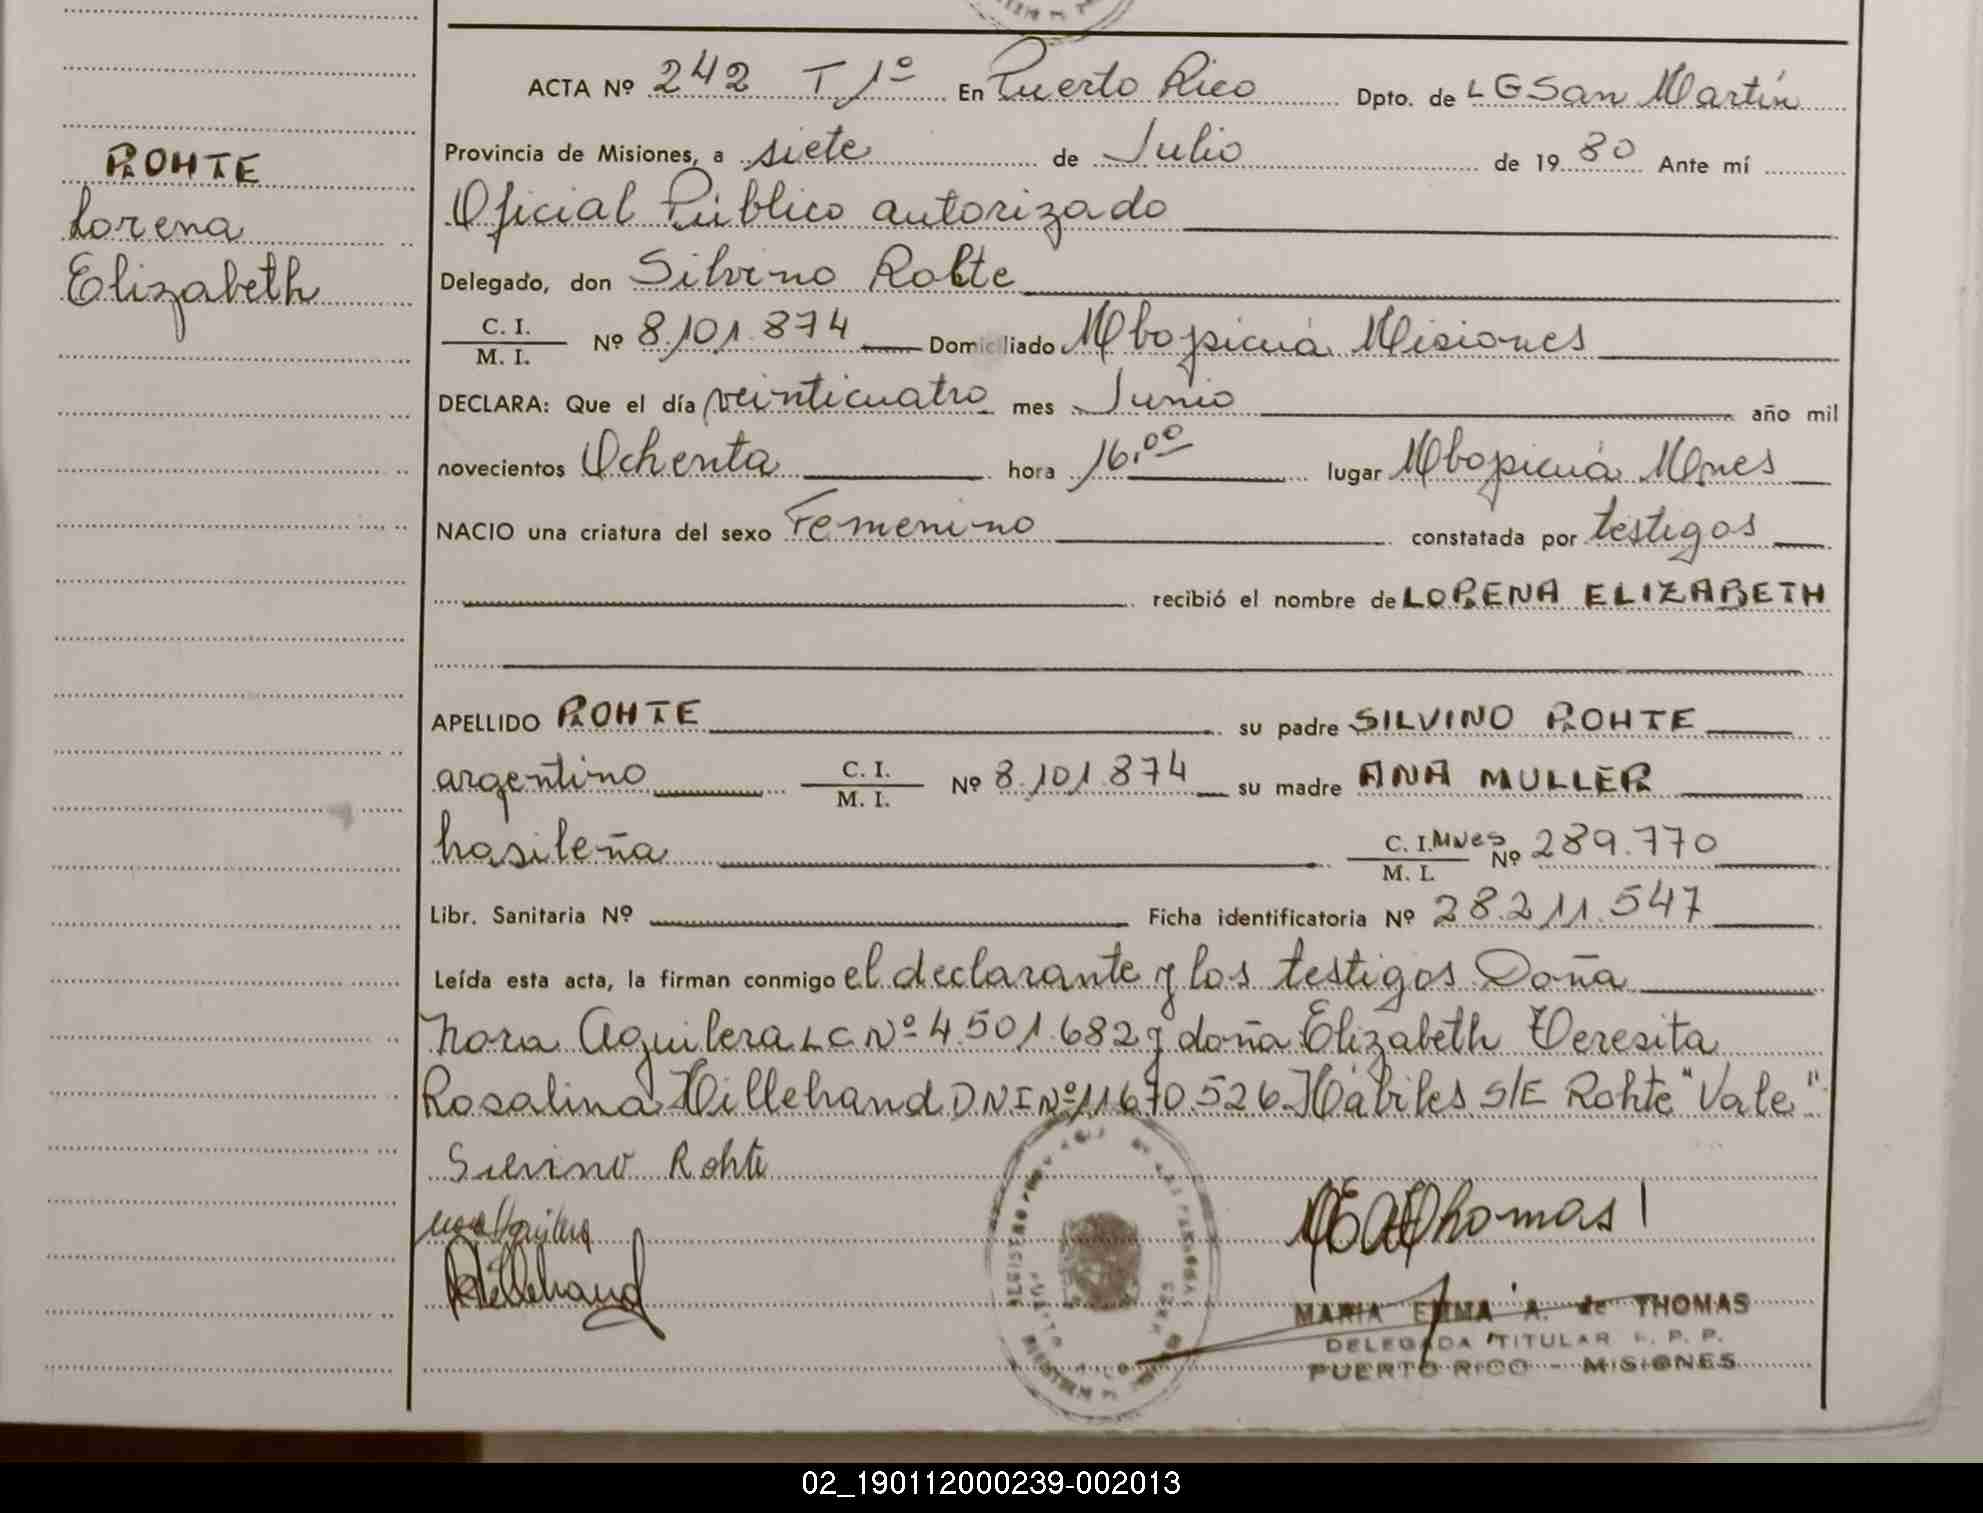 ACTA Nº 242 T 1º En Puerto Rico Dpto. de LGSan Martín
ROHTE
Lorena
Elizabeth
Provincia de Misiones, a siete de Julio de 1980 Ante mí
Oficial Público autorizado
Delegado, don Silvino Rohte
C. I.
M. I. Nº 8.101.874 Domiciliado Mbopicuá Misiones
DECLARA: Que el día veinticuatro mes Junio año mil
novecientos Ochenta hora 16,00 lugar Mbopicuá Mnes
NACIO una criatura del sexo Femenino constatada por testigos
recibió el nombre de LORENA ELIZABETH
APELLIDO ROHTE su padre SILVINO ROHTE
argentino C. I. M. I. Nº 8.101.874 su madre ANA MULLER
brasileña C. I. Mnes M. I. Nº 289.770
Libr. Sanitaria Nº Ficha identificatoria Nº 28.211.547
Leída esta acta, la firman conmigo el declarante y los testigos Doña
Nora Aguilera LC Nº 4.501.682 y doña Elizabeth Teresita
Rosalina Hillebrand DNI Nº 11.670.526 Hábiles S/E Rohte "Vale"
Silvino Rohte
Hillebrand
MEAThomas
MARIA EMMA A. de THOMAS
DELEGADA TITULAR R. P. P.
PUERTO RICO - MISIONES
02_190112000239-002013